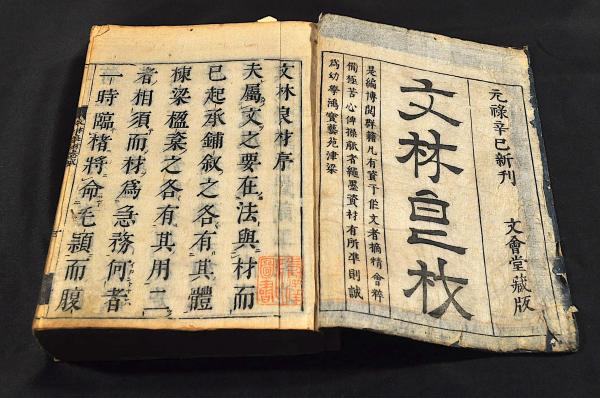 元祿辛巳新刊
文會堂藏版
文林良材
是編博閲群籍凡有資于作文者摘精會粹
備極苦心俾操觚者繩墨資材有所準則誠
爲幼學鴻寶藝苑津梁
文林良材序
夫屬文之要在法與材而
已起承鋪叙之各有其體
棟梁楹棄之各有其用二
者相須而材爲急務何者
一時臨楮將命毛頴而腹
圖書